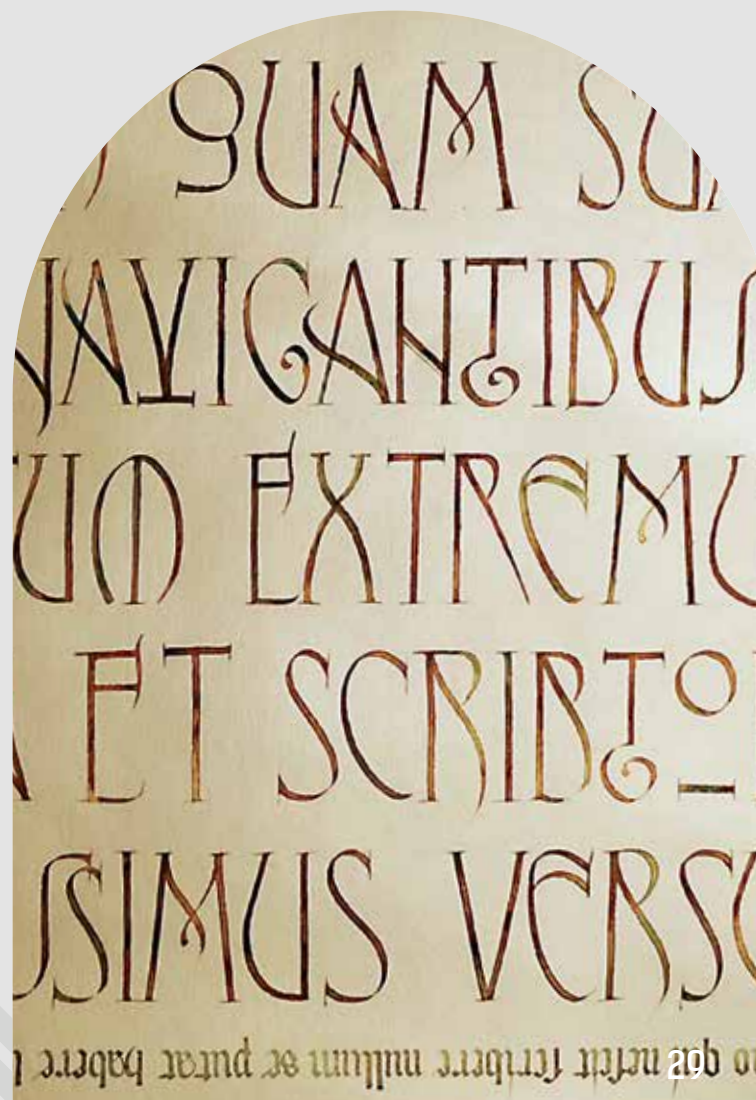 QUAM SUA
NAVIGANTIBUS
UM EXTREMU
ET SCRIBTO
SSIMUS VERSU
nescit scribere nullum se putat habere
29